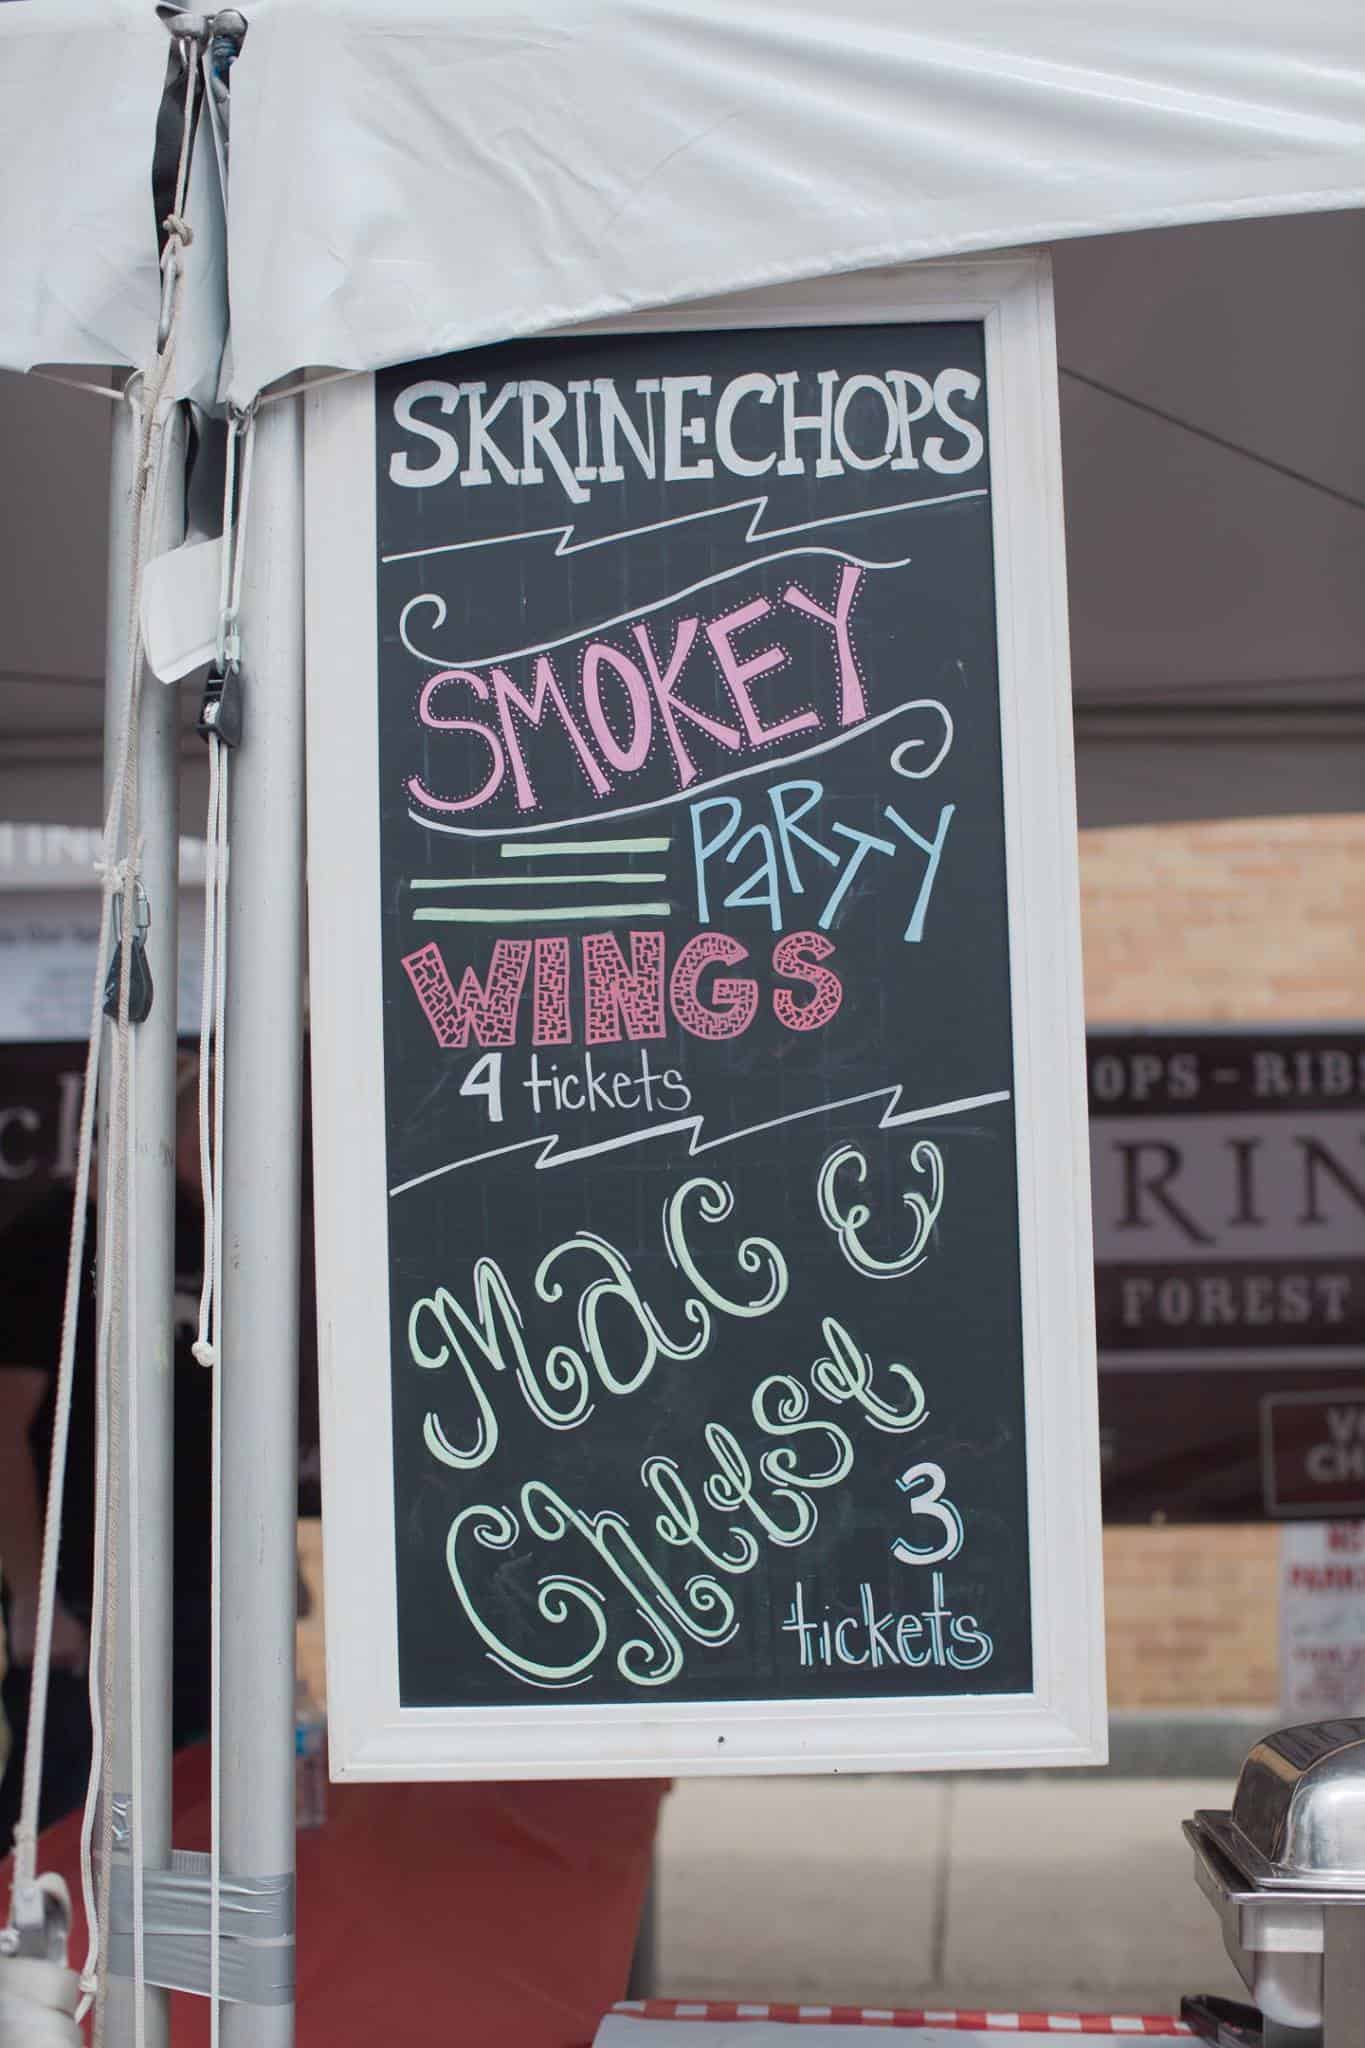 SKRINECHOPS
SMOKEY
PARTY
WINGS
4 tickets
MAC &
CHEESE
3
tickets
OPS - RIB
RIN
FOREST